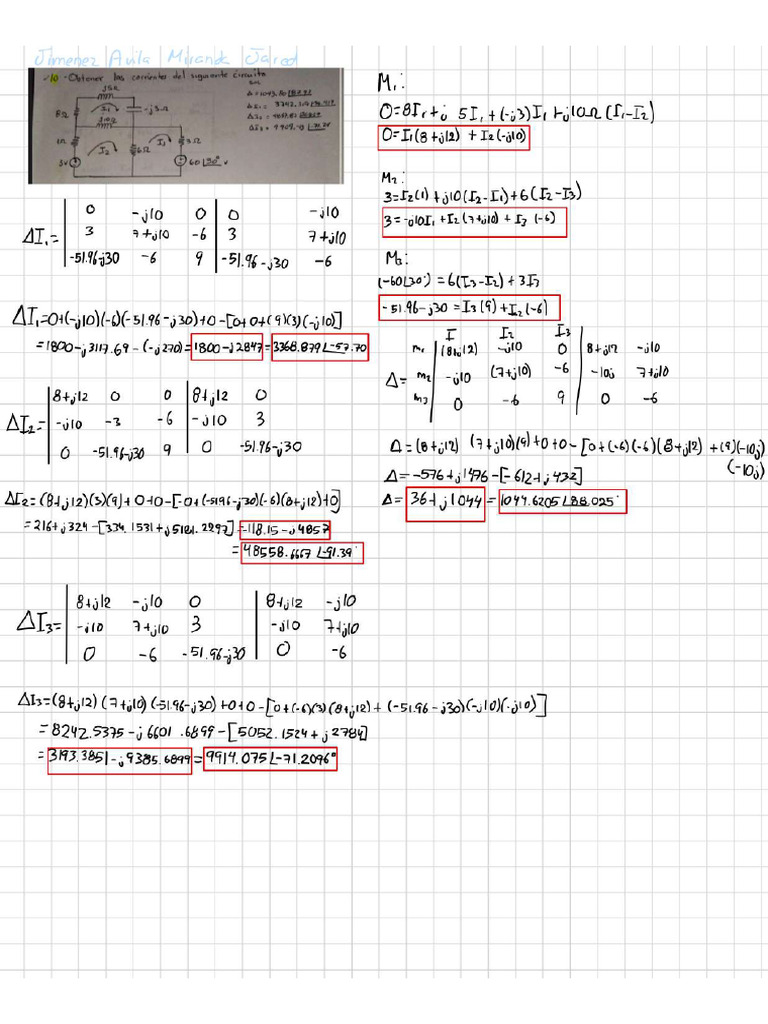 Jimenez Avila Miranda Jared
10.-Obtener las corrientes del siguiente circuito
j5Ω
8Ω
I₁
-j3Ω
j10Ω
1Ω
I₂
6Ω
I₃
3Ω
3v
60∠30° v
M₁:
0=8I₁+j5I₁+(-j3)I₁+j10Ω(I₁-I₂)
0=I₁(8+j12)+I₂(-j10)
M₂:
3=I₂(1)+j10(I₂-I₁)+6(I₂-I₃)
3=-j10I₁+I₂(7+j10)+I₃(-6)
M₃:
(-60∠30°)=6(I₃-I₂)+3I₃
-51.96-j30=I₃(9)+I₂(-6)
I₁ I₂ I₃
m₁ (8+j12) -j10 0 8+j12 -j10
Δ= m₂ -j10 (7+j10) -6 -10j 7+j10
m₃ 0 -6 9 0 -6
Δ=(8+j12)(7+j10)(9)+0+0-[0+(-6)(-6)(8+j12)+(9)(-10j)(-10j)
Δ=-576+j1476-[-612+j432]
Δ= 36+j1044 = 1044.6205∠88.025°
0 -j10 0 0 -j10
ΔI₁= 3 7+j10 -6 3 7+j10
-51.96-j30 -6 9 -51.96-j30 -6
ΔI₁=0+(-j10)(-6)(-51.96-j30)+0-[0+0+(9)(3)(-j10)]
=1800-j3117.69-(-j270)=1800-j2847=3368.879∠-57.70
8+j12 0 0 8+j12 0
ΔI₂= -j10 -3 -6 -j10 3
0 -51.96-j30 9 0 -51.96-j30
ΔI₂=(8+j12)(3)(9)+0+0-[-0+(-51.96-j30)(-6)(8+j12)+0]
=216+j324-[334.1531+j5181.2297]=-118.15-j4857
=48558.6667∠-91.39°
8+j12 -j10 0 8+j12 -j10
ΔI₃= -j10 7+j10 3 -j10 7+j10
0 -6 -51.96-j30 0 -6
ΔI₃=(8+j12)(7+j10)(-51.96-j30)+0+0-[0+(-6)(3)(8+j12)+(-51.96-j30)(-j10)(-j10)]
=8242.5375-j6601.6899-[5052.1524+j2784]
=3193.3851-j9385.6899=9914.075∠-71.2096°